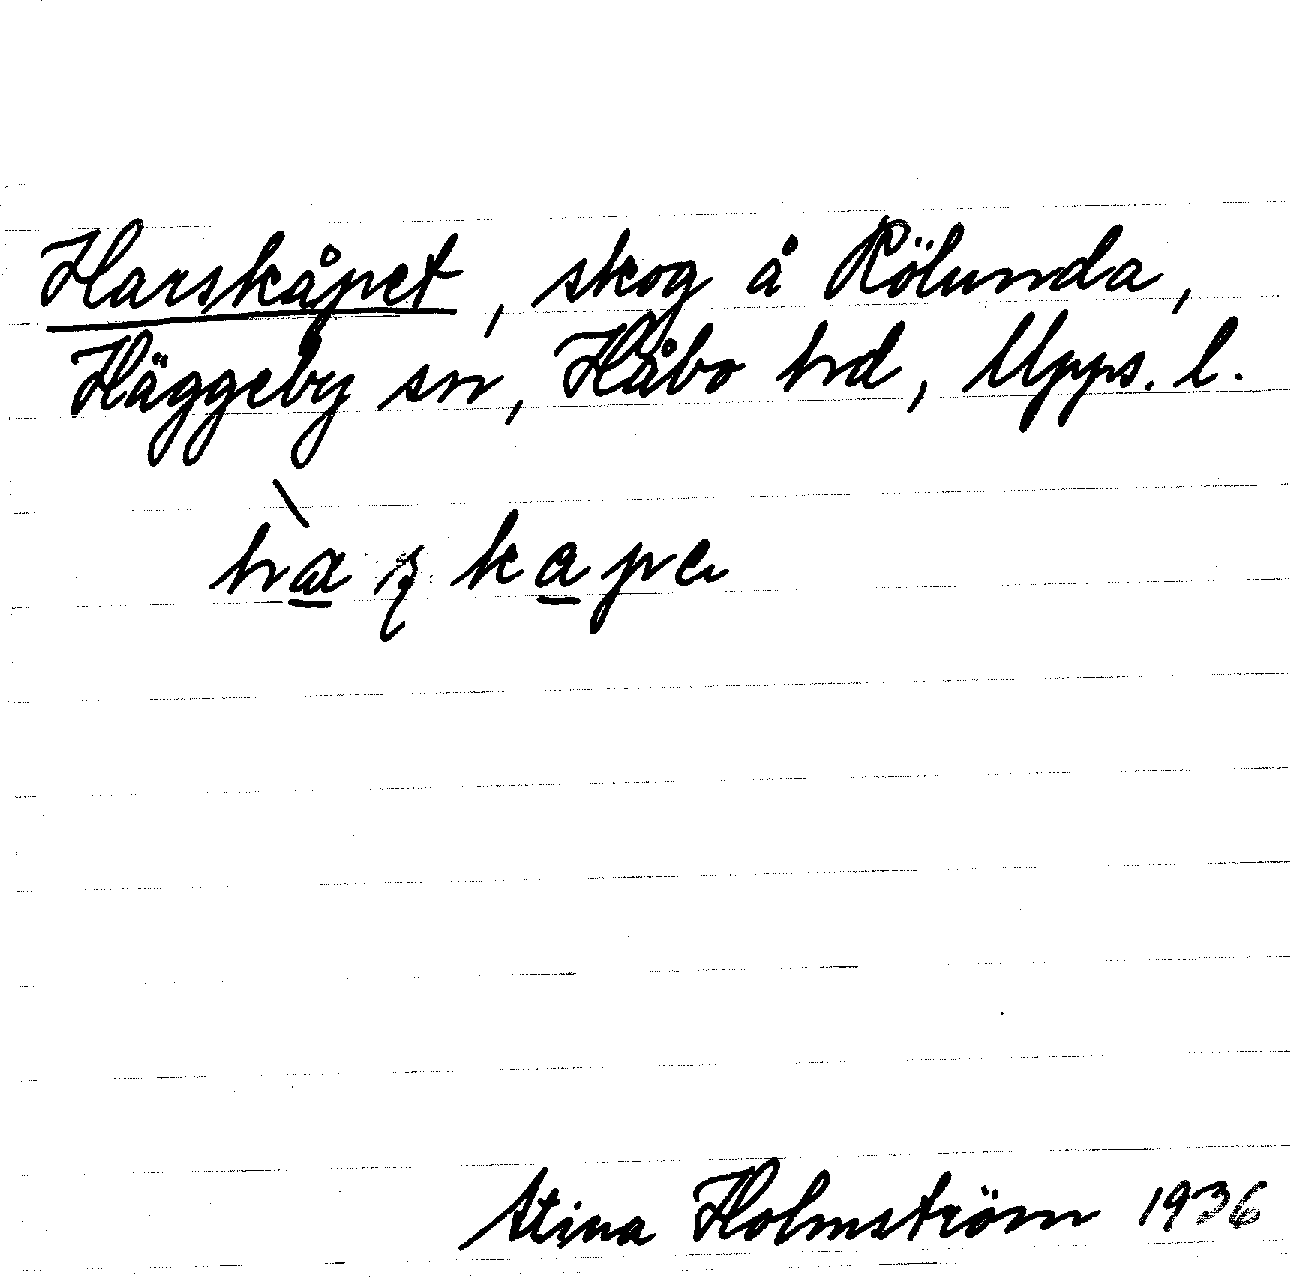 Harskåpet, skog å Rölunda,
Häggeby sn, Håbo hd, Upps. l.
hàʂkape
Stina Holmström 1936